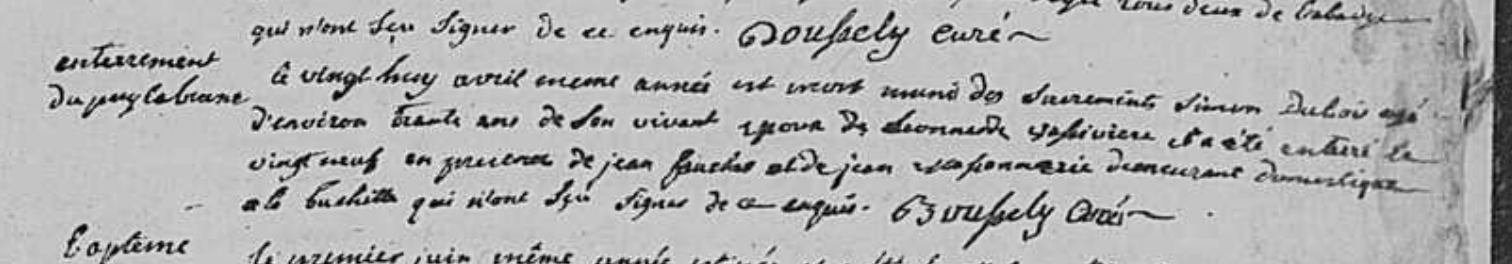 tous deux de
qui n'ont sçu signer de ce enquis. Boussely curé
enterrement
du puylabrane
le vingt huy avril meme année est mort muni des sacrements Simon Dubois agé
d'environ trante ans de son vivant epoux de Leonarde Vassiviere et a été enterré le
vingt neuf en presence de jean faucher et de jean demeurant domestique
a la buchette qui n'ont sçu signer de ce enquis. Boussely Curé
baptême
le premier juin même année